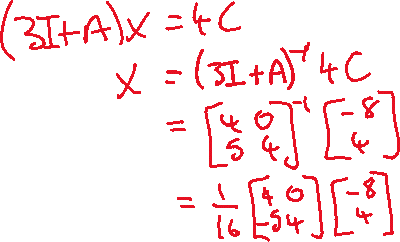 (3I+A)X = 4C
X = (3I+A)⁻¹ 4C
= [4 0; 5 4]⁻¹ [-8; 4]
= 1/16 [4 0; -5 4] [-8; 4]